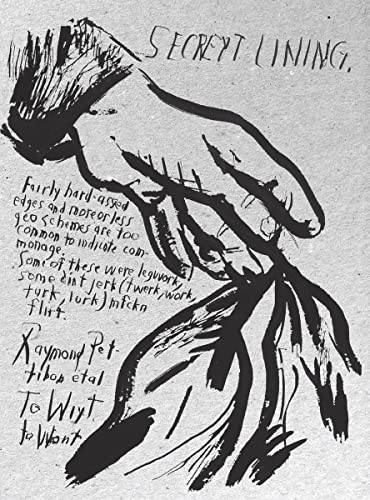 SECREYT LINING.
Fairly hard-assed
edges and moreorless
geo schemes are too
common to indicate com-
monage.
Some of these were legwork,
some dint jerk (twerk, work,
turk, lurk) mfckn
flirt
Raymond Pet-
tibon etal
To Wiyt,
to Wont